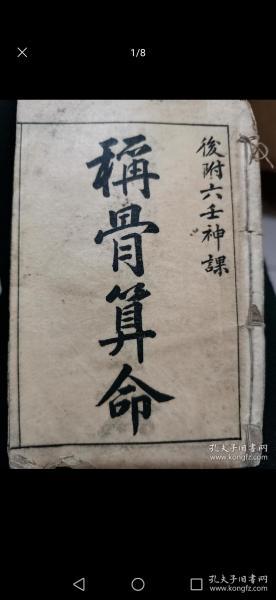 1/8
後附六壬神課
稱骨算命
孔夫子旧书网
www.kongfz.com
孔夫子旧书网
www.kongfz.com